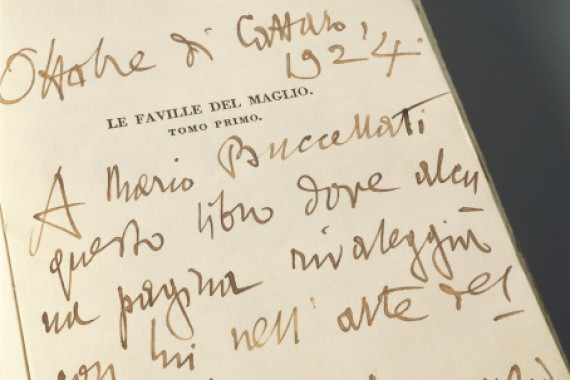 Ottobre di Cattaro,
1924.
LE FAVILLE DEL MAGLIO.
TOMO PRIMO.
A Mario Buccellati
questo libro dove alcu
na pagina rivaleggia
con lui nell' arte del